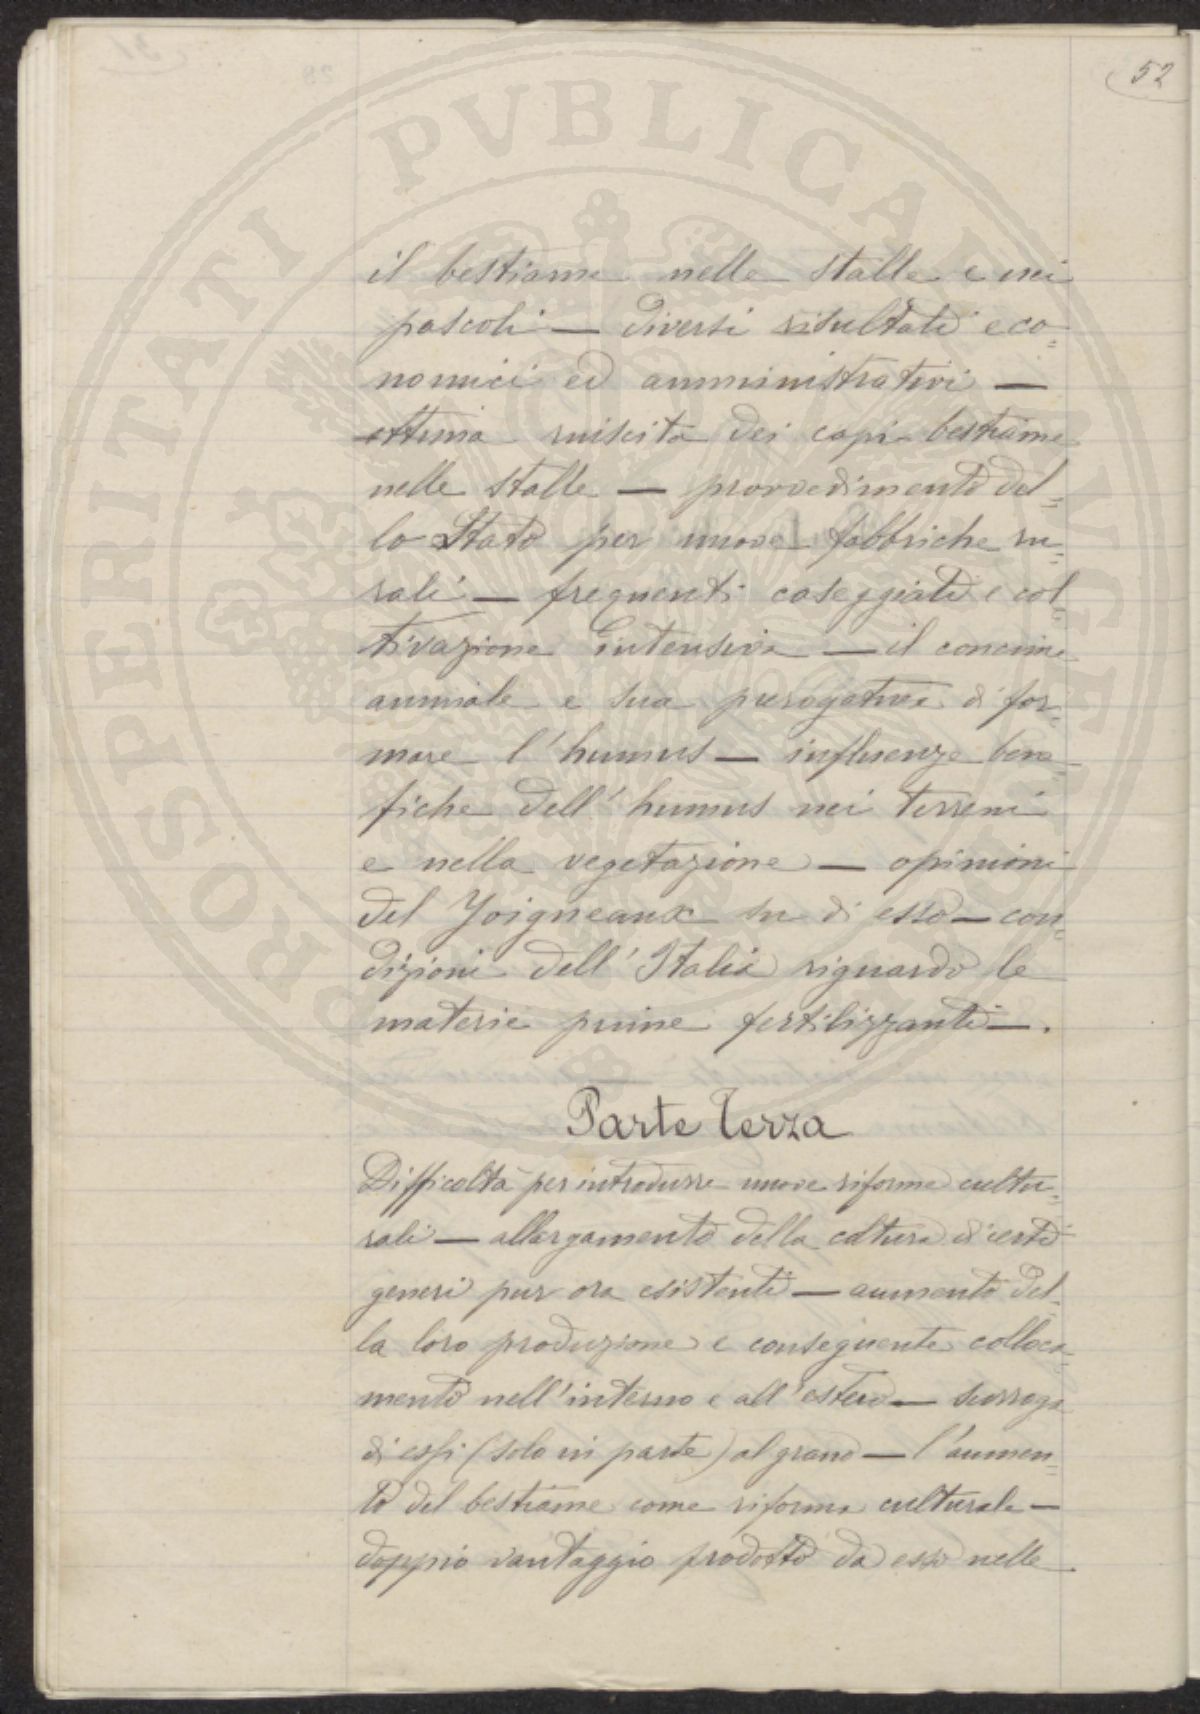 52
il bestiame nelle stalle e nei
pascoli — diversi risultati eco=
nomici ed amministrativi —
ottima riuscita dei capi bestiame
nelle stalle — provvedimento del=
lo Stato per nuove fabbriche ru=
rali — frequenti caseggiati e col=
tivazione intensiva — il concime
animale e sua prerogativa di for=
mare l'humus — influenze bene=
fiche dell'humus nei terreni
e nella vegetazione — opinioni
del Joigneaux su di esso — con=
dizioni dell'Italia riguardo le
materie prime fertilizzanti —.
Parte Terza
Difficoltà per introdurre nuove riforme cultu=
rali — allargamento della coltura di certi
generi pur ora esistenti — aumento del=
la loro produzione e conseguente colloca=
mento nell'interno e all'estero — surroga
di essi (solo in parte) al grano — l'aumen=
to del bestiame come riforma culturale —
doppio vantaggio prodotto da esso nelle
PROSPERITATI PVBLICAE AVGENDAE